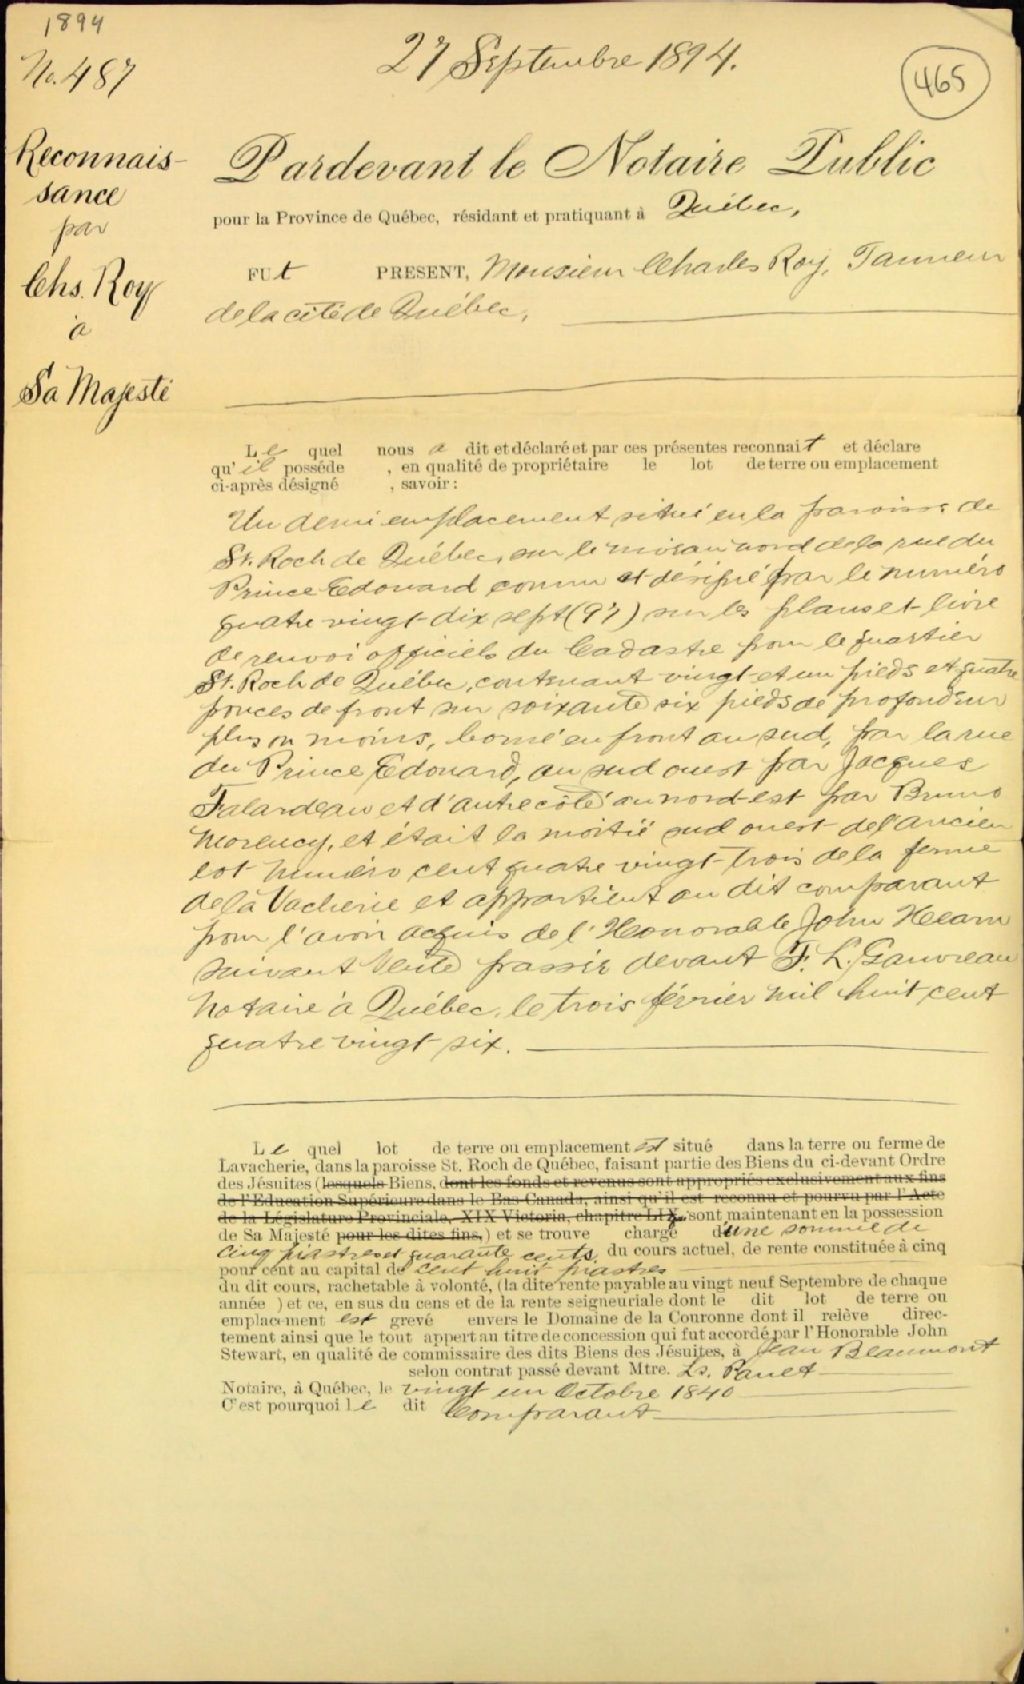 1894
No. 487
27 Septembre 1894.
465
Reconnais-
sance
par
Chs. Roy
à
Sa Majesté
Pardevant le Notaire Public
pour la Province de Québec, résidant et pratiquant à Québec,
FUt PRESENT, Monsieur Charles Roy, Tanneur
de la cité de Québec,
Le quel nous a dit et déclaré et par ces présentes reconnait et déclare
qu'il posséde , en qualité de propriétaire le lot de terre ou emplacement
ci-après désigné , savoir :
Un demi emplacement situé en la paroisse de
St. Roch de Québec, sur le niveau nord de la rue du
Prince Edouard connu et désigné par le numéro
quatre vingt-dix sept (97) sur les plans et livre
de renvoi officiels du Cadastre pour le quartier
St. Roch de Québec, contenant vingt-et un pieds et quatre
pouces de front sur soixante six pieds de profondeur
plus ou moins, borné en front au sud, par la rue
du Prince Edouard, au sud ouest par Jacques
Falardeau et d'autre côté au nord-est par Bruno
Morency, et était la moitié sud ouest de l'ancien
lot numéro cent quatre vingt-trois de la ferme
de la Vacherie et appartient au dit comparant
pour l'avoir acquis de l'Honorable John Hearn
suivant Vente passée devant F. L. Gauvreau
Notaire à Québec, le trois février mil huit cent
quatre vingt six.
Le quel lot de terre ou emplacement est situé dans la terre ou ferme de
Lavacherie, dans la paroisse St. Roch de Québec, faisant partie des Biens du ci-devant Ordre
des Jésuites (lesquels Biens, dont les fonds et revenus sont appropriés exclusivement aux fins
de l'Education Supérieure dans le Bas-Canada, ainsi qu'il est reconnu et pourvu par l'Acte
de la Législature Provinciale, XIX Victoria, chapitre LIX, sont maintenant en la possession
de Sa Majesté pour les dites fins,) et se trouve chargé d'une somme de
cinq piastres et quarante cents, du cours actuel, de rente constituée à cinq
pour cent au capital de cent huit piastres
du dit cours, rachetable à volonté, (la dite rente payable au vingt neuf Septembre de chaque
année ) et ce, en sus du cens et de la rente seigneuriale dont le dit lot de terre ou
emplacement est grevé envers le Domaine de la Couronne dont il relève direc-
tement ainsi que le tout appert au titre de concession qui fut accordé par l'Honorable John
Stewart, en qualité de commissaire des dits Biens des Jésuites, à Jean Beaumont
selon contrat passé devant Mtre. Ls. Panet
Notaire, à Québec, le vingt un Octobre 1840
C'est pourquoi le dit Comparant